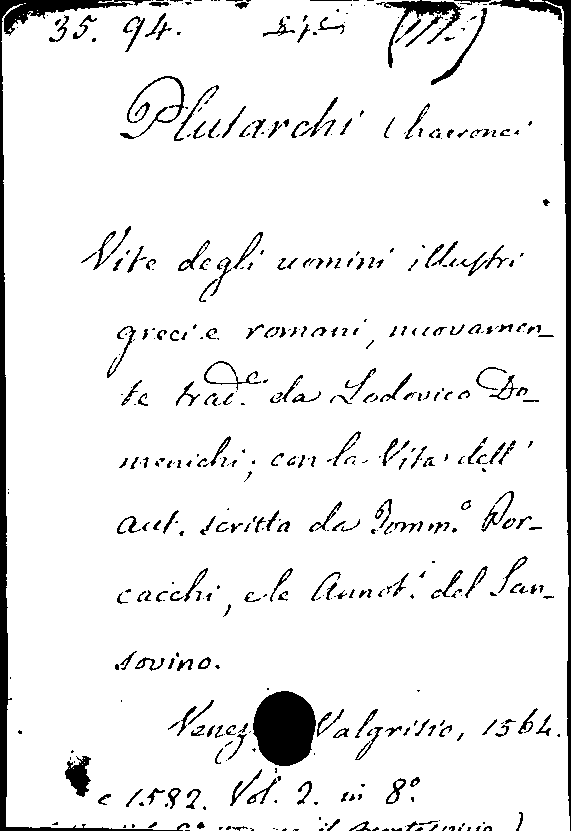 35. 94. (III.)
Plutarchi Chaeronei
Vite degli uomini illustri
greci e romani, nuovamen-
te trad.e da Lodovico Do-
menichi; con la Vita dell'
aut. scritta da Tomm.o Por-
cacchi, e le Annot.i del San-
sovino.
Venez Valgrisio, 1564.
e 1582. Vol. 2. in 8.o